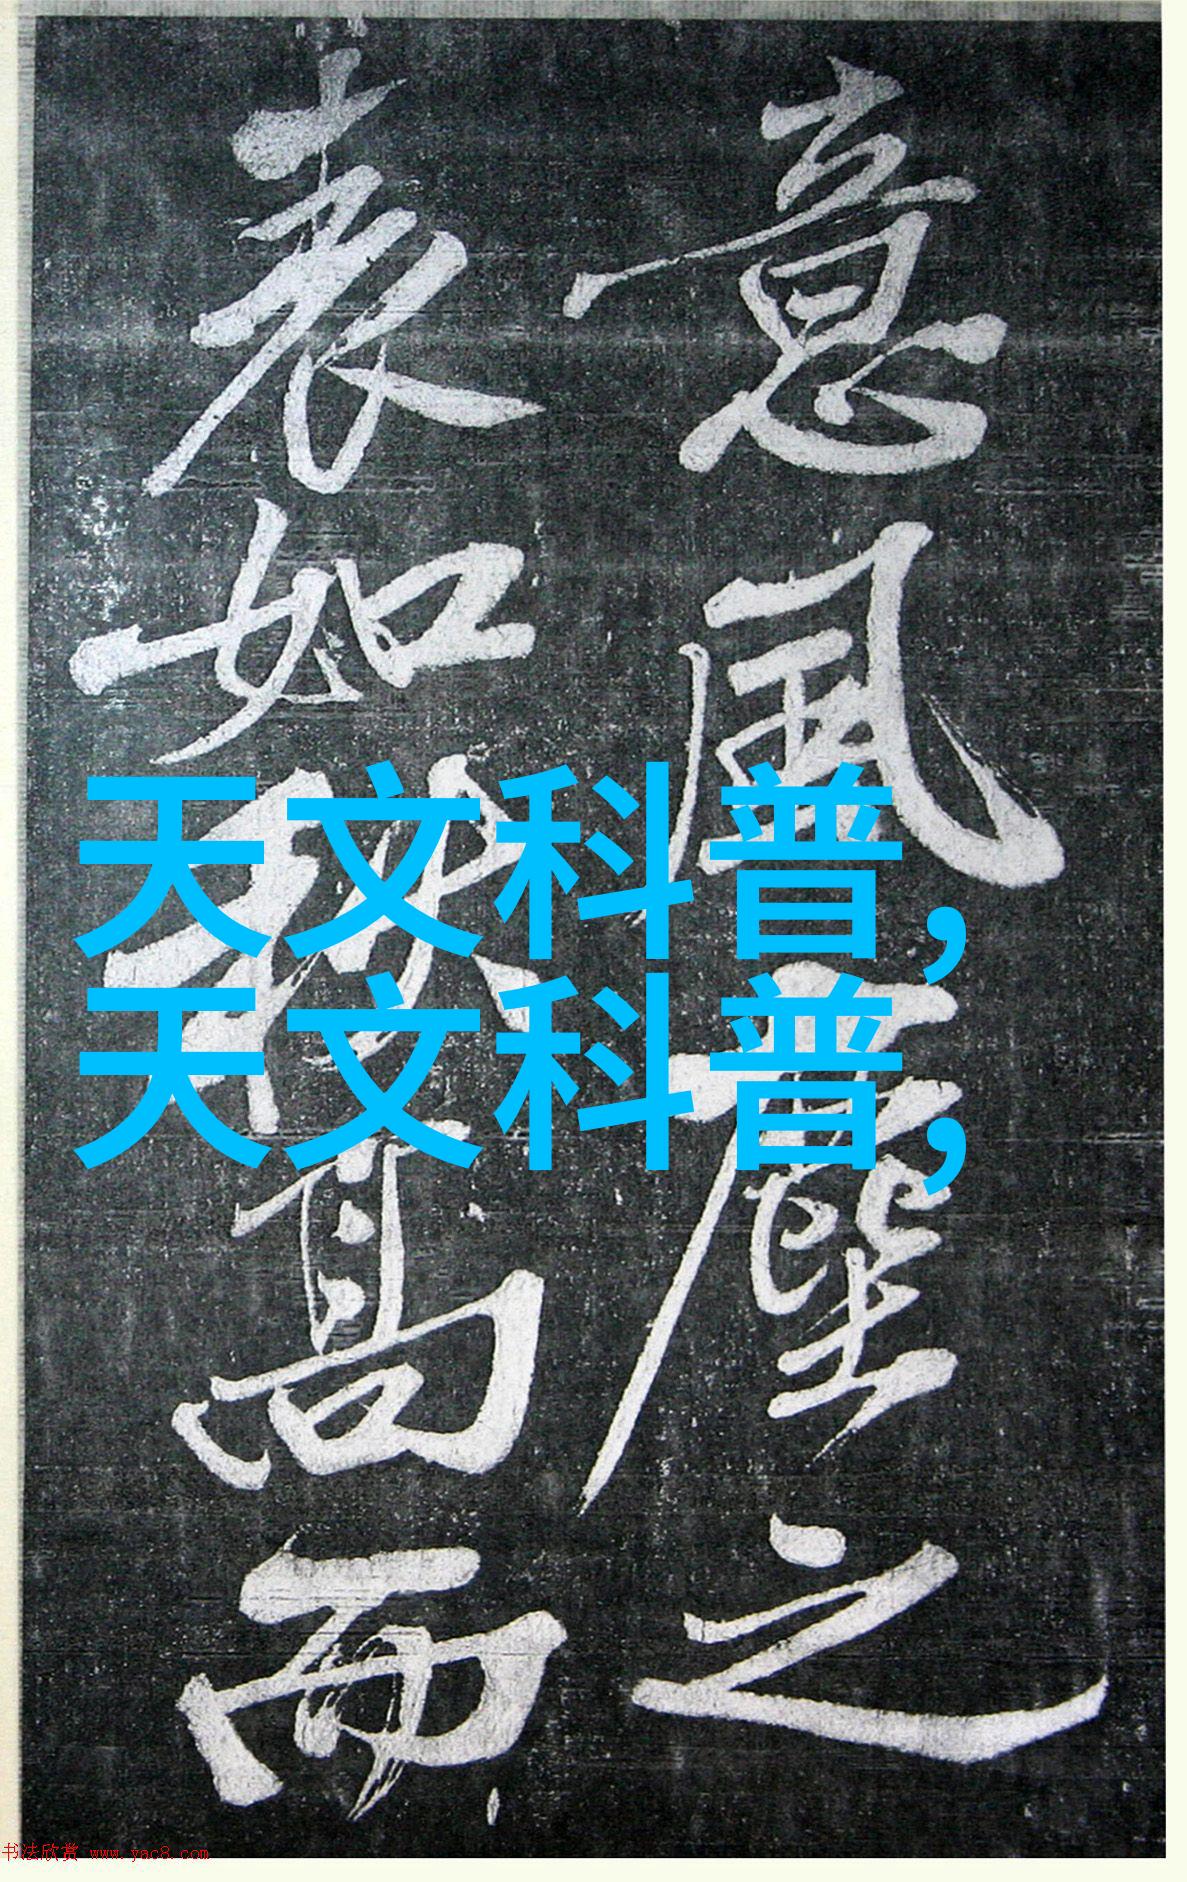 意風塵之
表如高而
天文科普,
天文科普,
书法欣赏 www.yac8.com